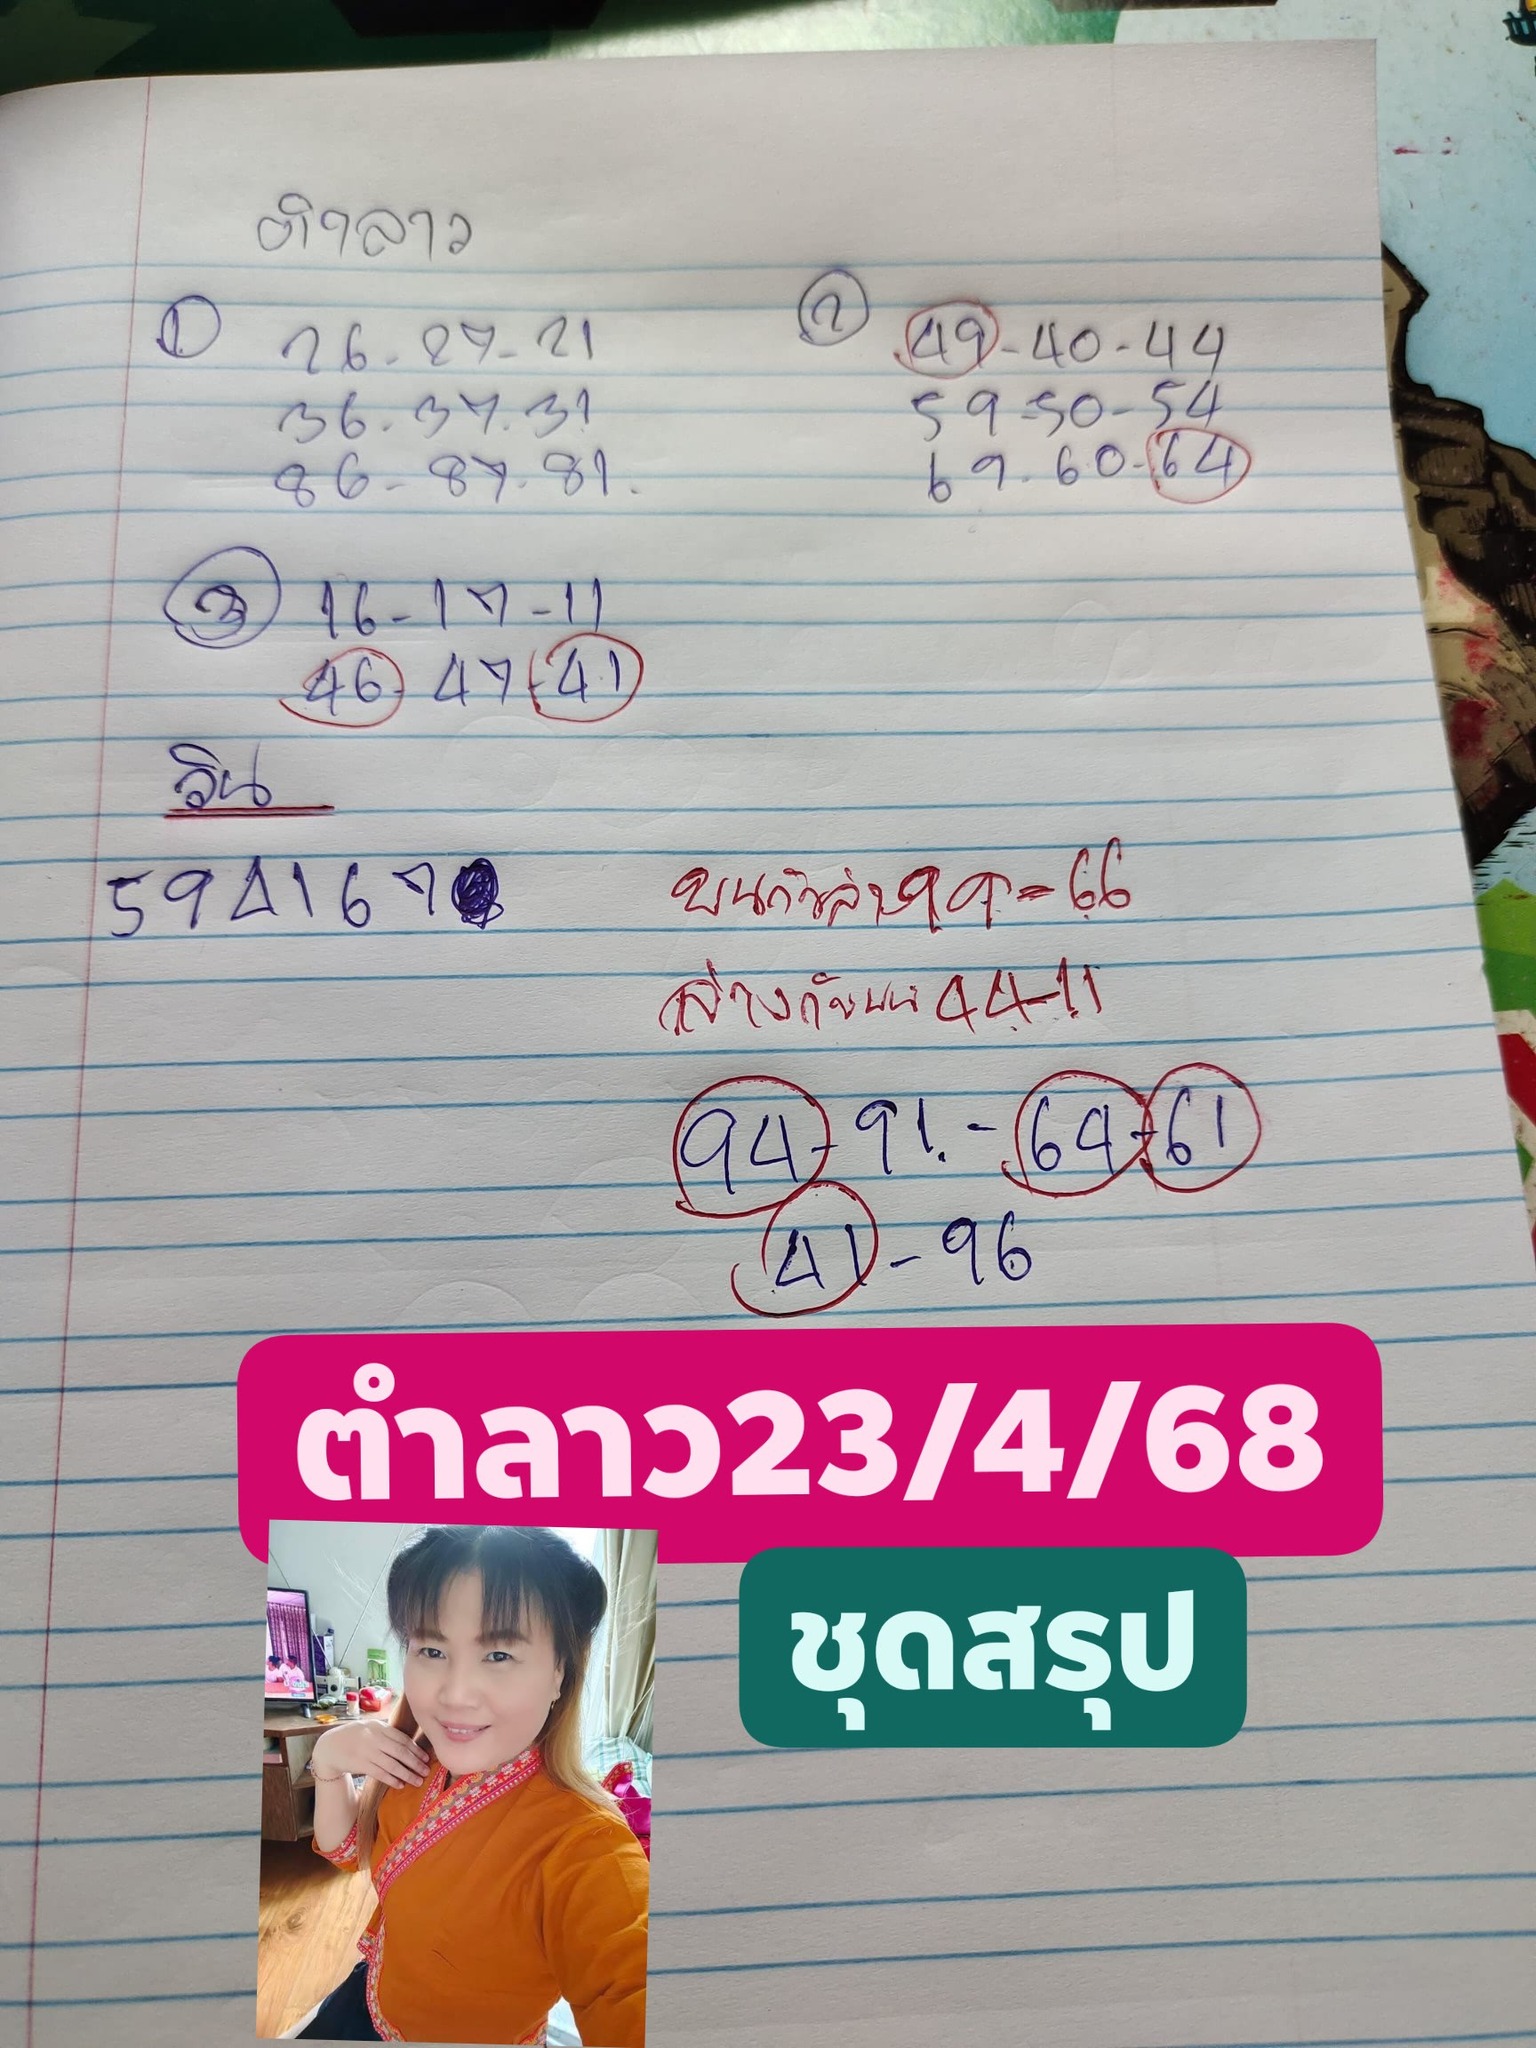 ตำลาว
① 26-27-21
36-37-31
86-87-81.
② 49-40-44
59-50-54
69-60-64
③ 16-17-11
46-47-41
วิน
594167
บนกับล่าง 99=66
ล่างกับบน 44-11
94-91-64-61
41-96
ตำลาว23/4/68
ชุดสรุป